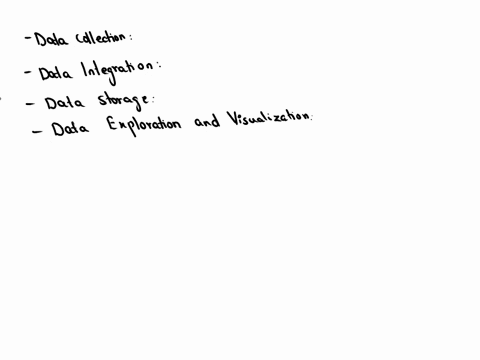 - Data Collection:
- Data Integration:
- Data Storage:
- Data Exploration and Visualization: